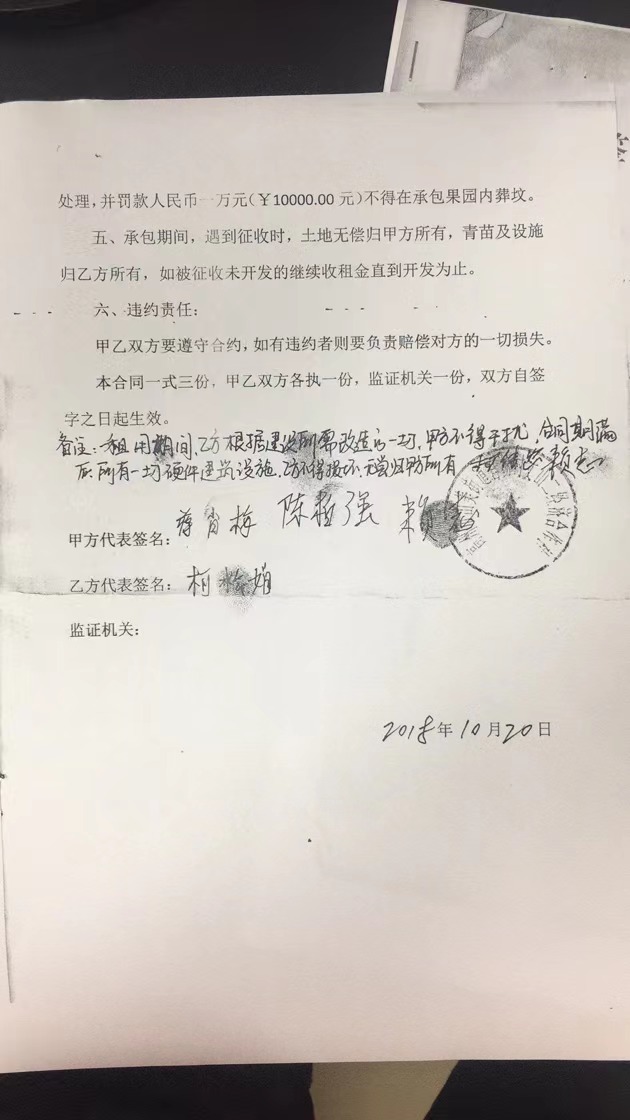 处理，并罚款人民币一万元（￥10000.00 元）不得在承包果园内葬坟。
五、承包期间，遇到征收时，土地无偿归甲方所有，青苗及设施
归乙方所有，如被征收未开发的继续收租金直到开发为止。
六、违约责任：
甲乙双方要遵守合约，如有违约者则要负责赔偿对方的一切损失。
本合同一式三份，甲乙双方各执一份，监证机关一份，双方自签
字之日起生效。
备注：租用期间，乙方根据建设所需改造的一切，甲方不得干扰，合同期满
后所有一切硬件建筑设施，乙方不得损坏，无偿归甲方所有
甲方代表签名：蒋肖梅 陈 强 赖
乙方代表签名：柯 娟
监证机关：
2018年10月20日